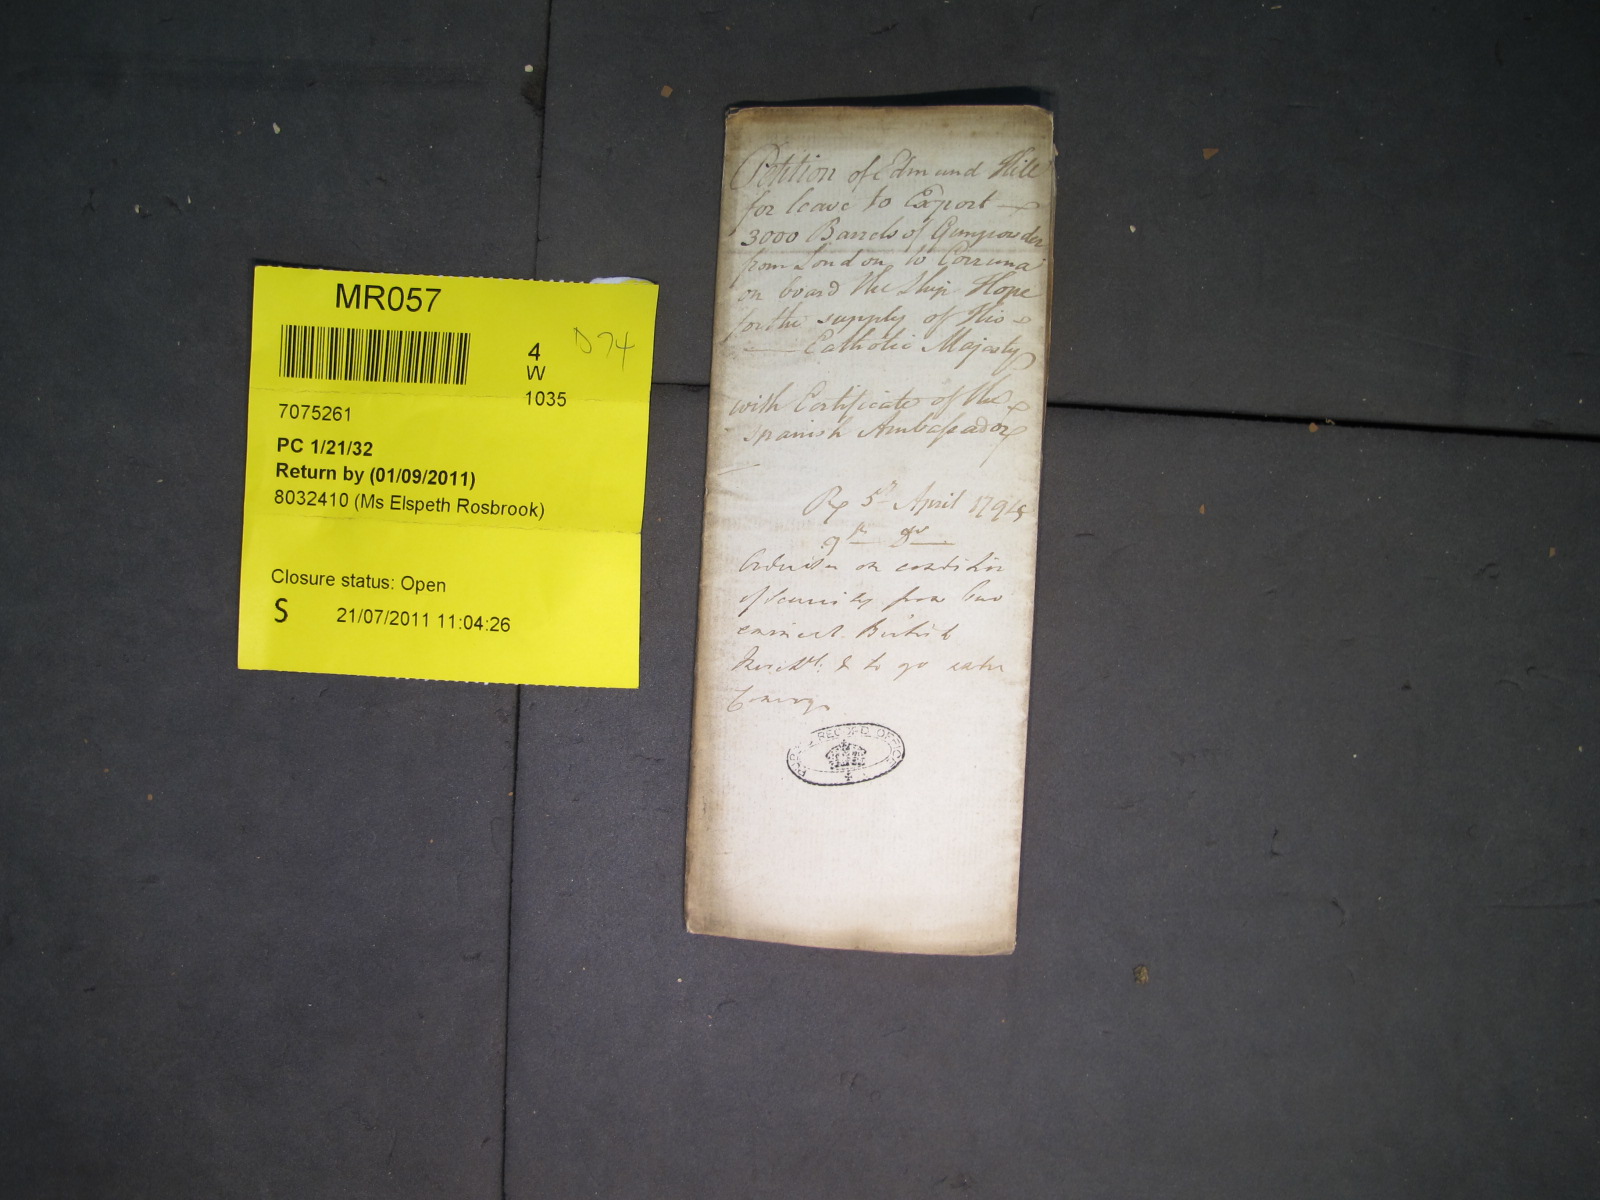 MR057
D74
4
W
1035
7075261
PC 1/21/32
Return by (01/09/2011)
8032410 (Ms Elspeth Rosbrook)
Closure status: Open
S 21/07/2011 11:04:26
Petition of Edmund Hill
for leave to Export
3000 Barrels of Gunpowder
from London to Corruna
on board the Ship Hope
for the supply of His
Catholic Majesty
with Certificate of the
Spanish Ambassador
5th April 1794
9th
on condition
of security from two
eminent British
& to go under
Convoy
PUBLIC RECORD OFFICE